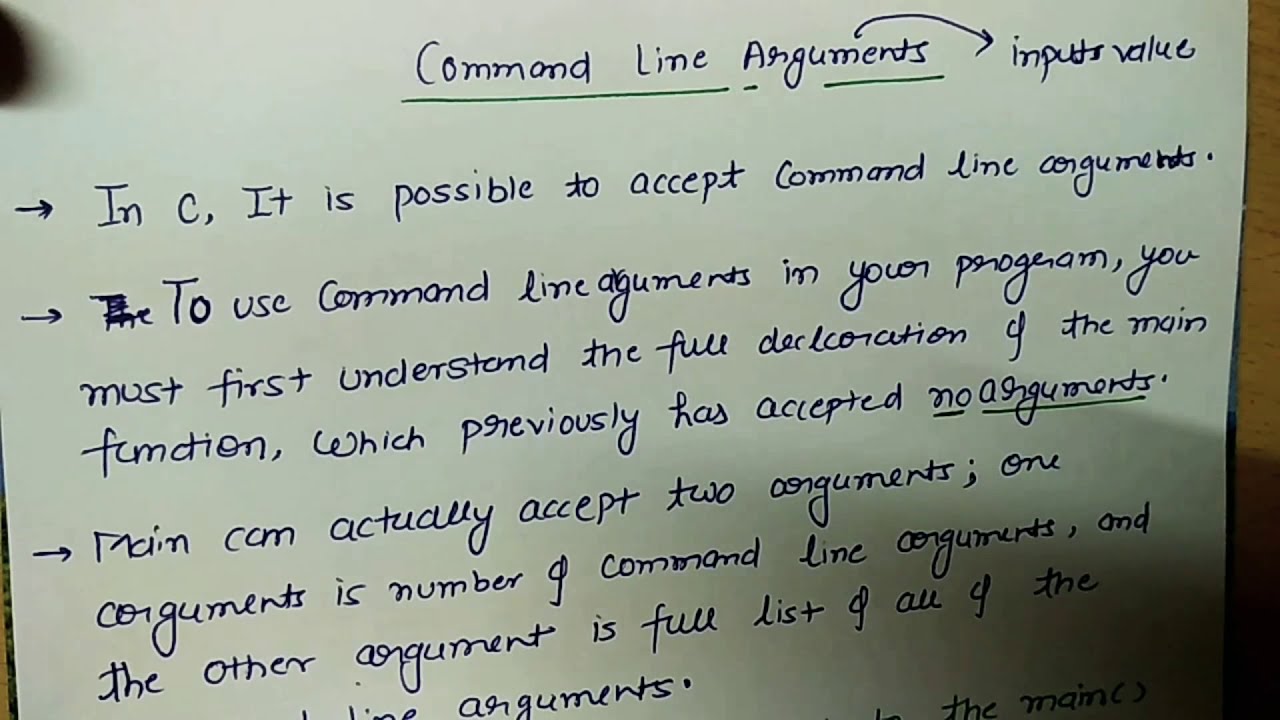 Command Line Arguments → inputs value
→ In C, It is possible to accept Command line arguments.
→ To use Command line aguments in your program, you
must first understand the full declaration of the main
function, which previously has accepted no arguments.
→ Main can actually accept two arguments; one
arguments is number of command line arguments, and
the other argument is full list of all of the
line arguments.
the main()